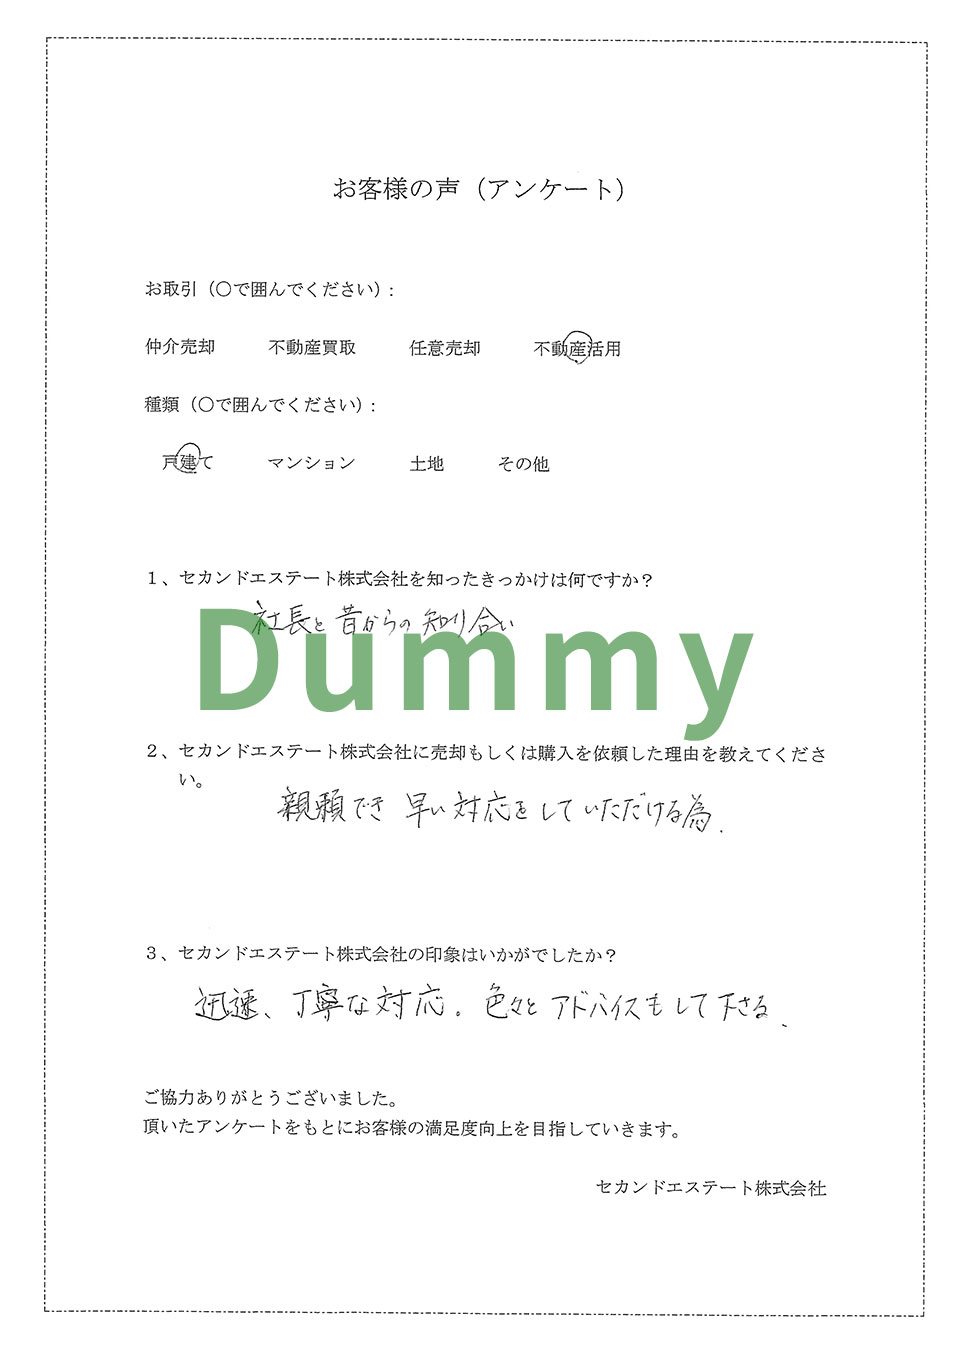 お客様の声（アンケート）
お取引（〇で囲んでください）:
仲介売却 不動産買取 任意売却 不動産活用
種類（〇で囲んでください）:
戸建て マンション 土地 その他
1、セカンドエステート株式会社を知ったきっかけは何ですか？
社長と昔からの知り合い
Dummy
2、セカンドエステート株式会社に売却もしくは購入を依頼した理由を教えてくださ
い。
親頼でき 早い対応をしていただける為.
3、セカンドエステート株式会社の印象はいかがでしたか？
迅速、丁寧な対応。色々とアドバイスもして下さる.
ご協力ありがとうございました。
頂いたアンケートをもとにお客様の満足度向上を目指していきます。
セカンドエステート株式会社